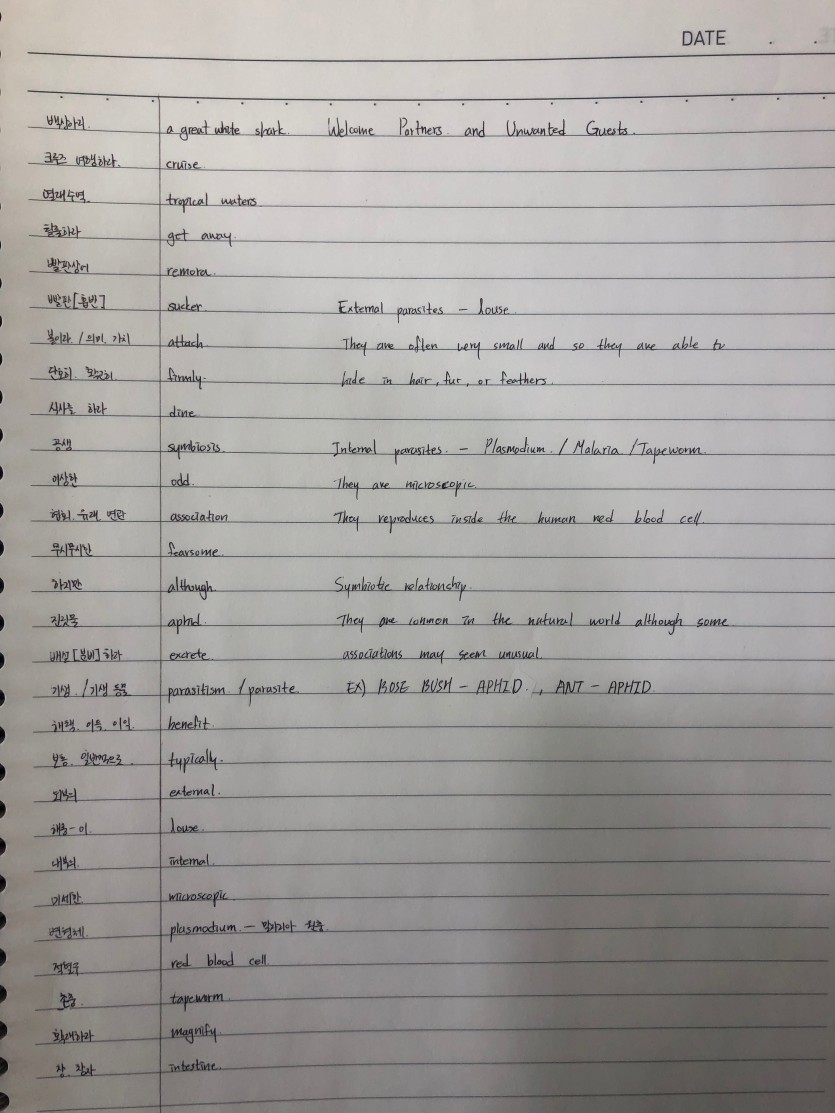 DATE . .
백상아리. a great white shark. Welcome Partners and Unwanted Guests.
크루즈 여행하다. cruise.
열대수역. tropical waters.
탈출하라 get away.
빨판상어 remora.
빨판[흡반] sucker. External parasites - louse.
붙이다. / 의미, 가치 attach. They are often very small and so they are able to
단호히. 확고히. firmly. hide in hair, fur, or feathers.
식사를 하다 dine.
공생 symbiosis. Internal parasites. - Plasmodium. / Malaria / Tapeworm.
이상한 odd. They are microscopic.
협회. 유대. 연관 association They reproduces inside the human red blood cell.
무시무시한 fearsome.
하지만 although. Symbiotic relationship.
진딧물 aphid. They are common in the natural world although some
배설[분비]하다 excrete. associations may seem unusual.
기생. / 기생 동물 parasitism / parasite EX) ROSE BUSH - APHID. , ANT - APHID.
혜택. 이득. 이익. benefit.
보통. 일반적으로. typically.
외부의 external.
해충-이 louse.
내부의. internal.
미세한 microscopic.
변형체. plasmodium. - 말라리아 원충.
적혈구 red blood cell.
촌충. tapeworm.
확대하다 magnify.
장. 창자 intestine.